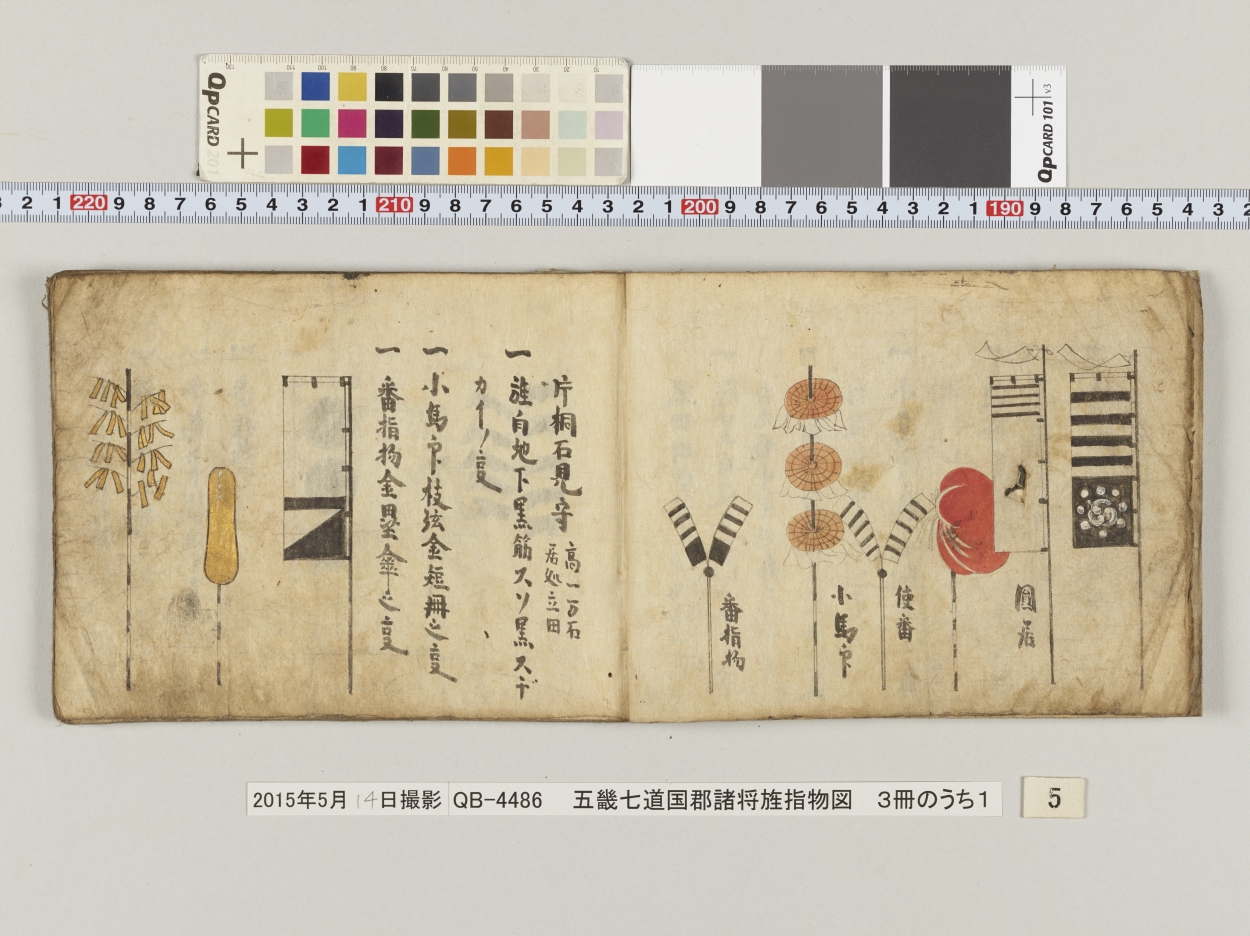 QPCARD 201
130 110 100 90 80 70 60 50 40 30 20 10
QPCARD 101 v3
3 2 1 220 9 8 7 6 5 4 3 2 1 210 9 8 7 6 5 4 3 2 1 200 9 8 7 6 5 4 3 2 1 190 9 8 7 6 5 4 3 2
圓居
使番
小馬印
番指物
片桐石見守
高一万石
居処立田
一 旌白地下黒筋スソ黒スヂ
カイノ変
一 小馬印枝弦金短冊之変
一 番指物金
之変
2015年5月14日撮影 QB-4486 五畿七道国郡諸将旌指物図 3冊のうち1
5